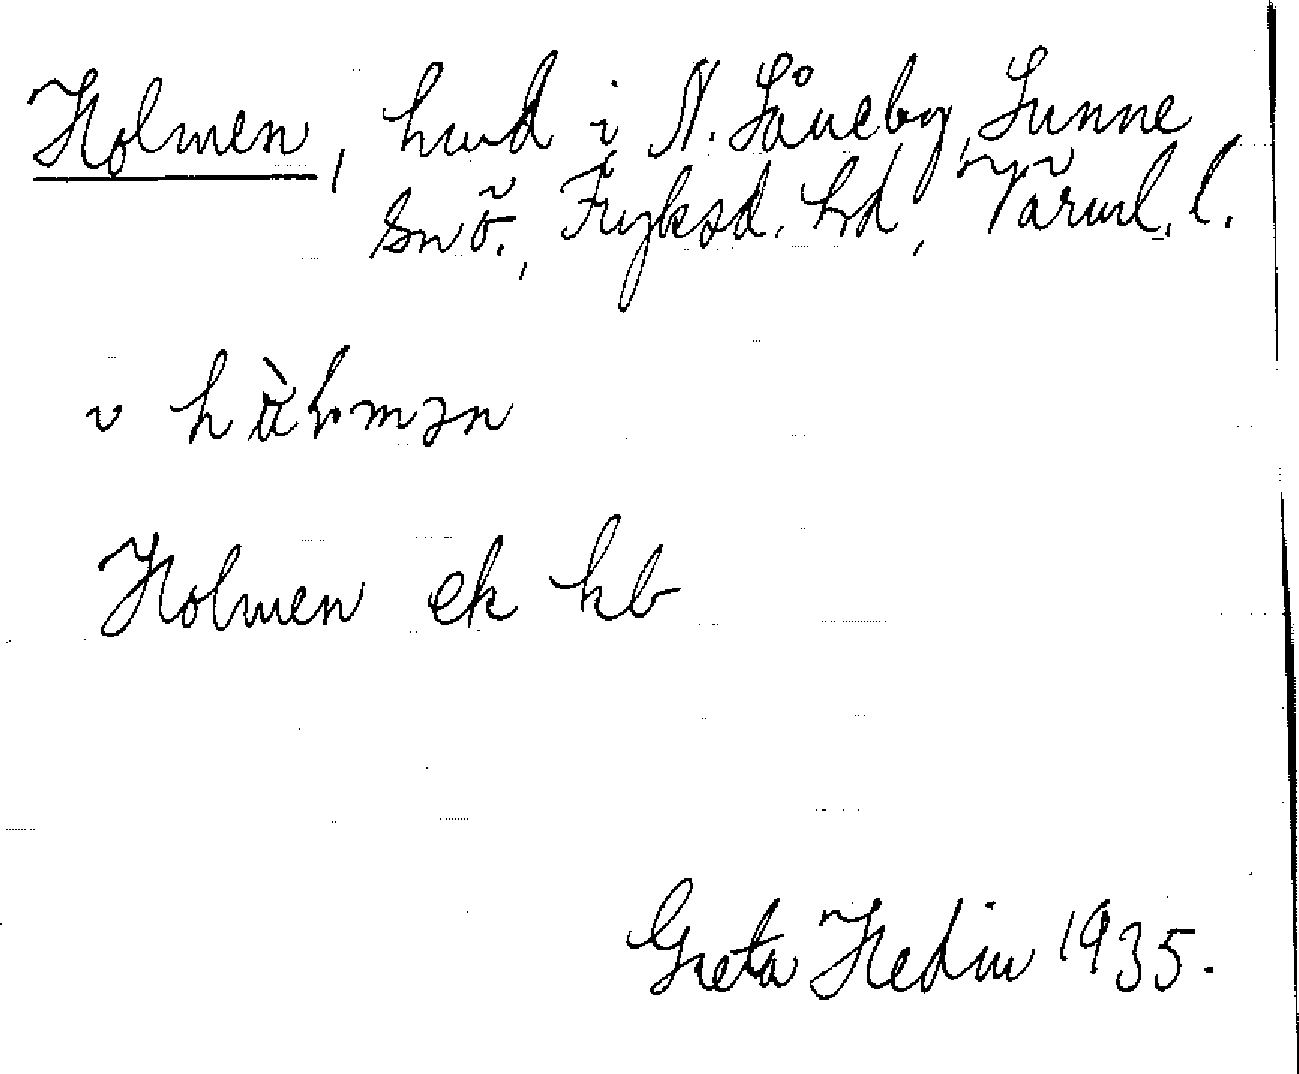 Holmen, hmd i N. Såneby, Sunne
snö., Fryksd. hd, Värml. l.
Holmen ek kb
Greta Hedin 1935.